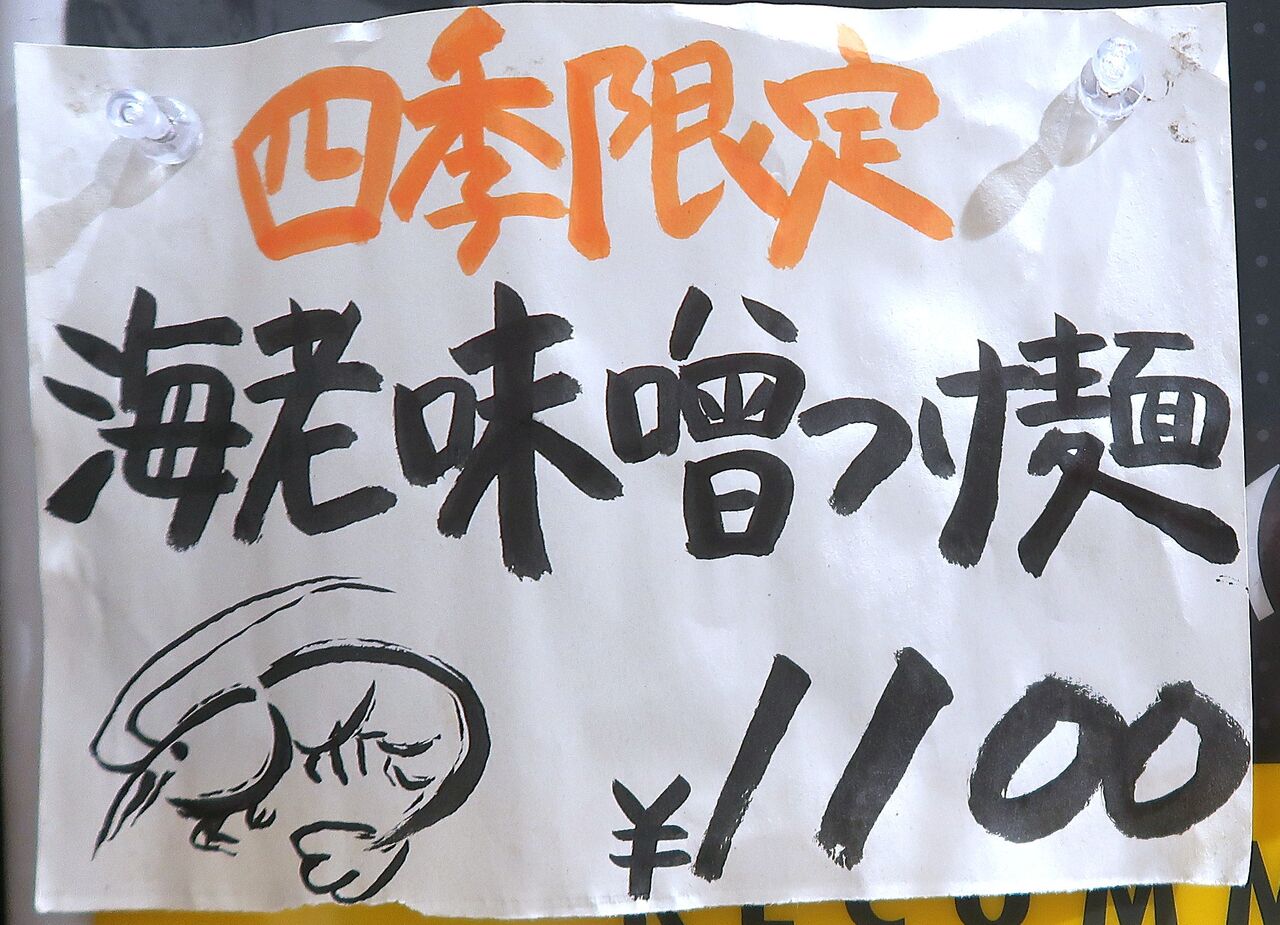 四季限定
海老味噌つけ麺
¥1100
RECOMM